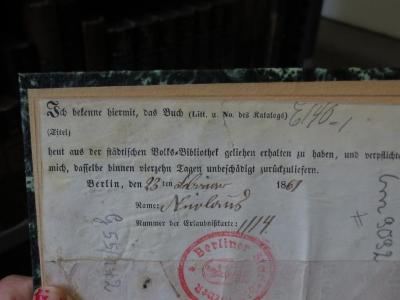 Ich bekenne hiermit, das Buch (Litt. u. No. des Katalogs) E 146-1
(Titel)
heut aus der städtischen Volks-Bibliothek geliehen erhalten zu haben, und verpflichte
mich, dasselbe binnen vierzehn Tagen unbeschädigt zurückzuliefern.
Berlin, den 23 ten Februar 1861
Name: Nicolaus
Nummer der Erlaubnißkarte: 1114
Berliner